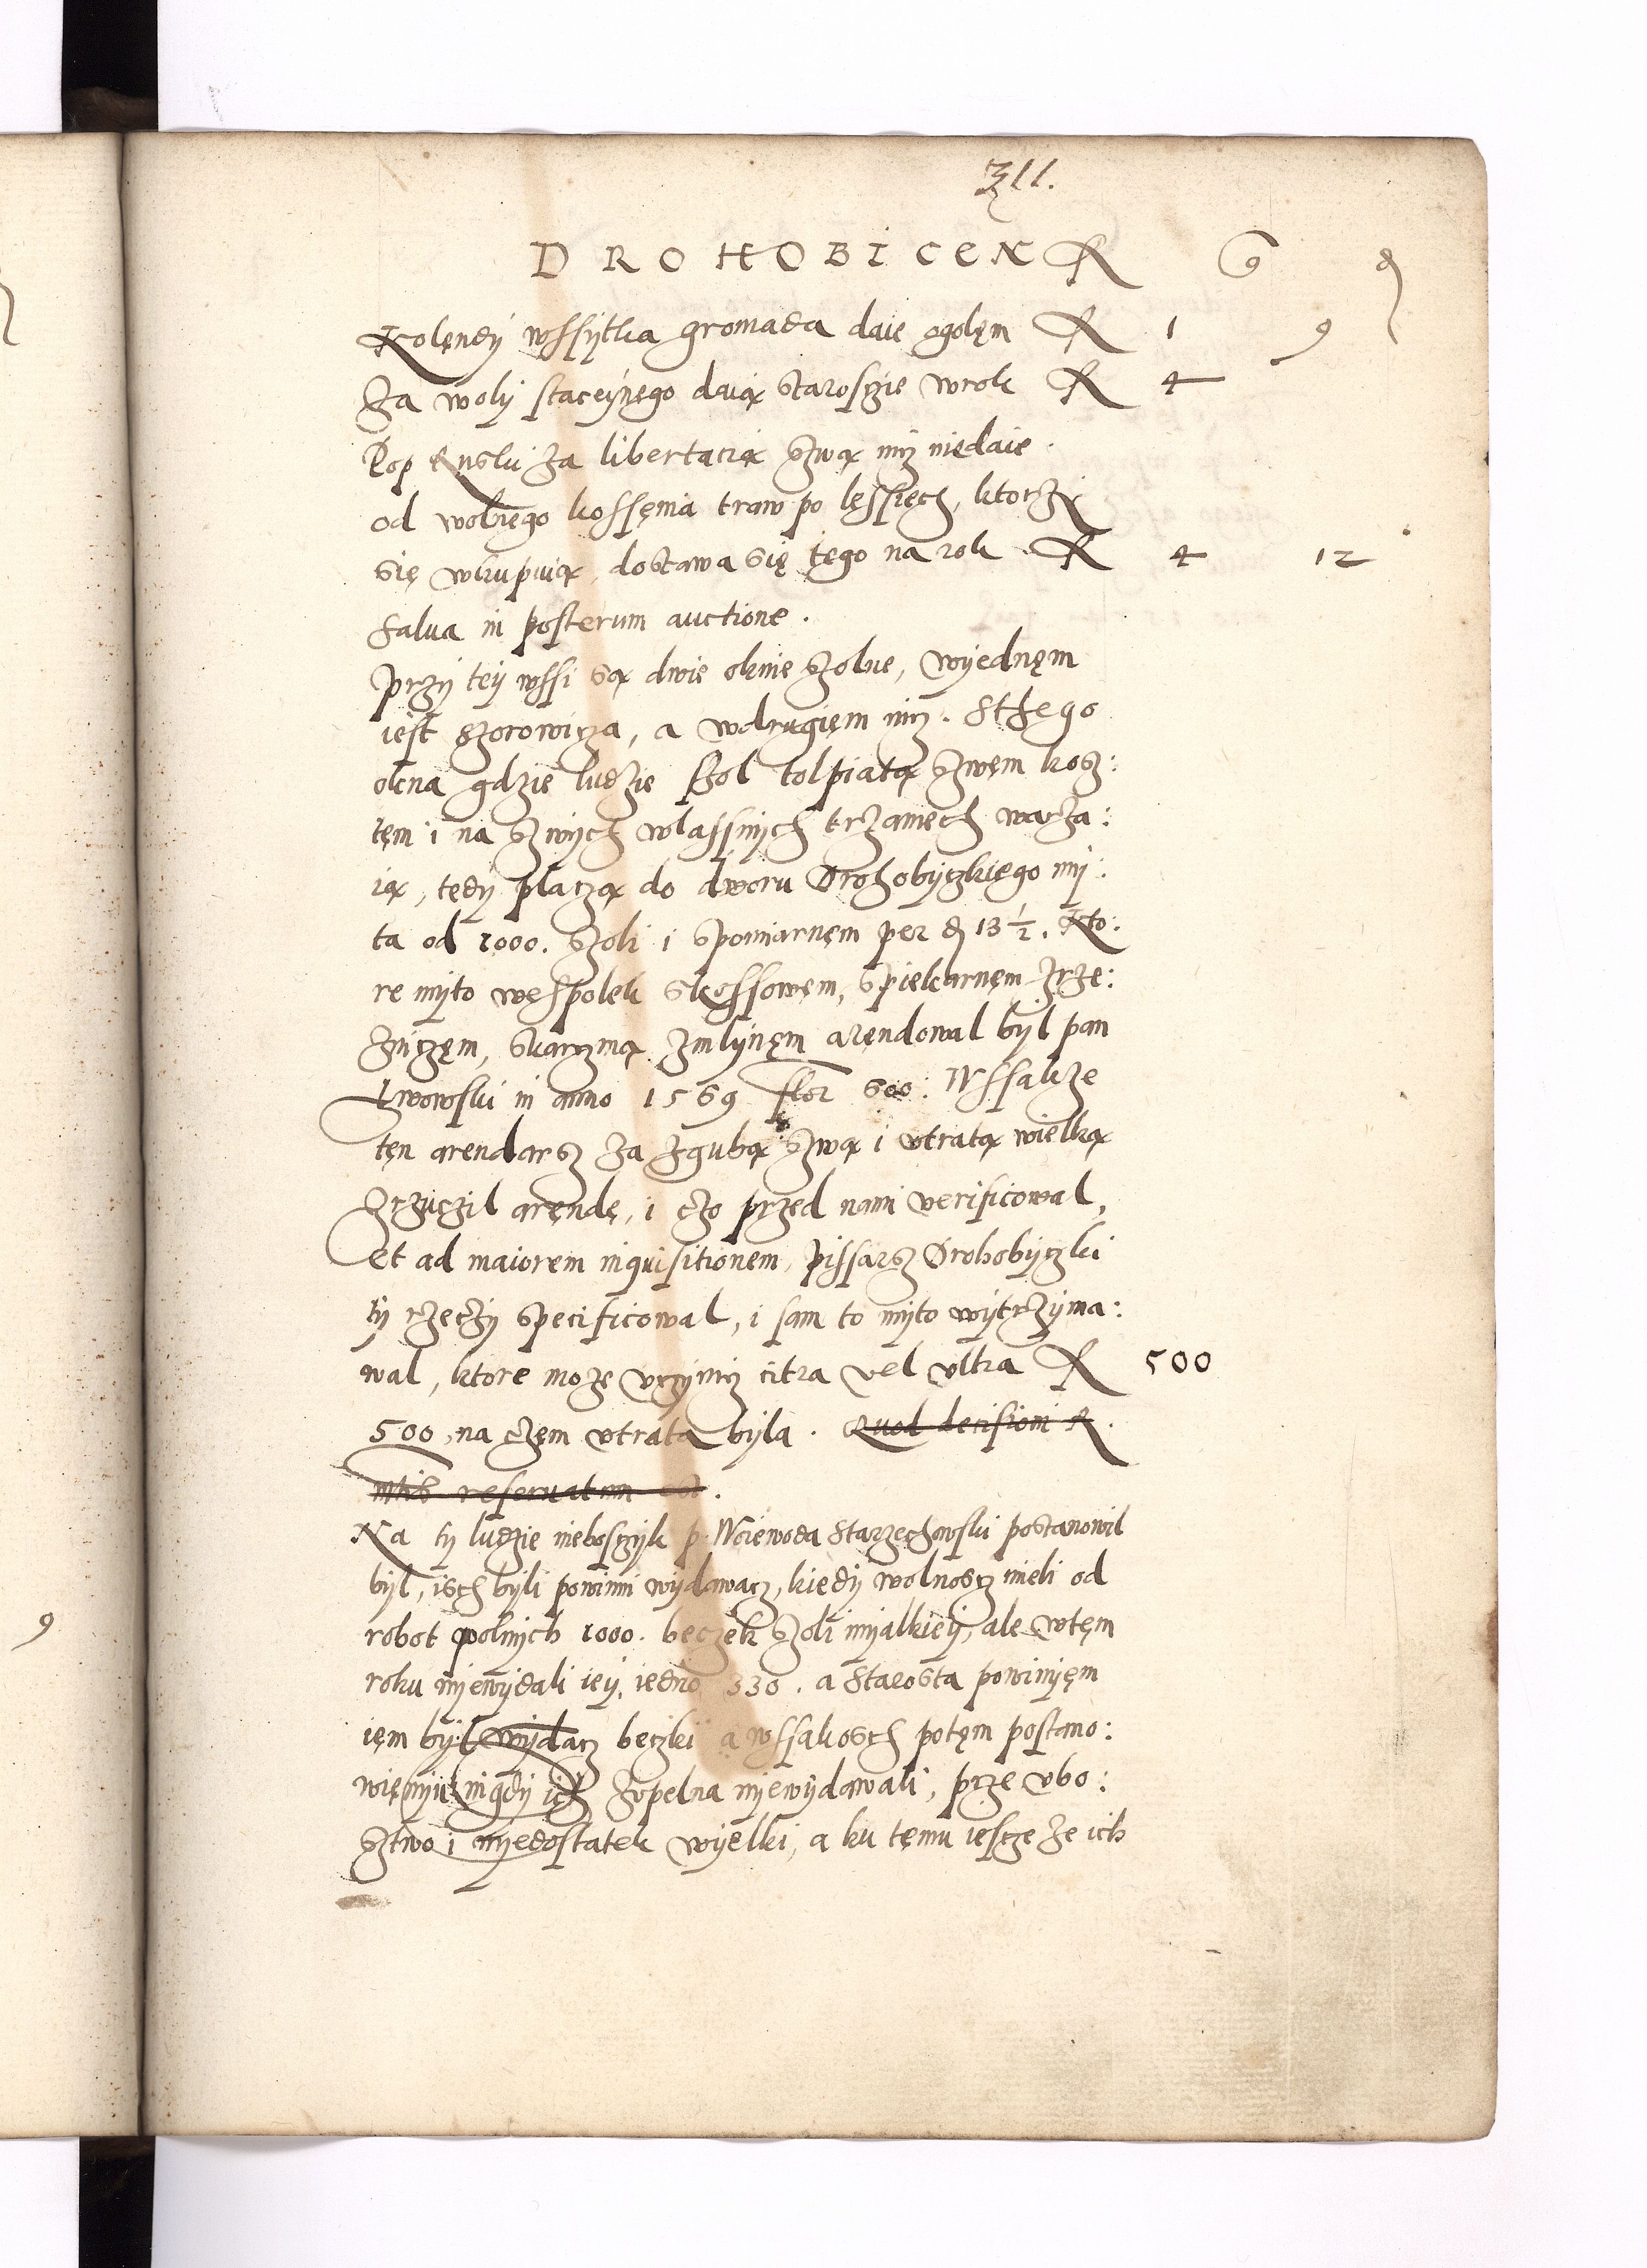 311.
DROHOBICEN R G d
Kolendy wssytka gromada daie ogolęm R 1 9
Za woly staceynęgo daią staroszzie wrok R 4
Pop Ruski za libertaczią szwą nicz niedaie.
od wolnęgo kossęnia traw po lęssięch, ktorzy
się wkupuią, dostawa się tęgo na rok R 4 12
salua in posterum auctione.
przy tey wssi są dwie oknie szolne, wyednęm
iest szorowicza, a wdrugięm nicz. Sthęgo
okna gdzie ludzie szol tolpiatą szwęm kosz:
tęm i na szwych wlassnych trzanięch warza:
ią, tędy placzą do dworu Drohobyczkięgo my:
ta od 1000. szoli i spomiarnęm per d 13 1/2. Kto:
re myto węspolek skossowęm, spiekarnęm zrze:
źniczęm, skarczmą zmlynęm arendowal byl pan
Lwowski in anno 1569 flor 600: Wssakze
tęn arendarsz za zgubą szwą i utratą wielką
zrzuczil aręndę, i czo przed nami verificowal,
et ad maiorem inquisitionem, pissarsz Drohobyczki
ty rzeczy specificowal, i sam to myto wytrzyma:
wal, ktore moze uczynicz citra vel ultra R 500
500, na częm utrata byla. Quod decisioni R.
mtis reseruatum est.
Na ty ludzie nieboszczyk p. Woiewoda Starzechowski postanowil
byl, isch byli powinni wydawacz, kiedy wolnoscz mieli od
robot polnych 1000. beczek szoli myalkiey, ale wtęm
roku niewydali iey, iedno 330. a Starosta powinięm
ięm byl wydacz beczki a wssakosch potęm postano:
wieniu nigdy ich zupelna nyewydawali, prze ubo:
sztwo i nyedostatek wyelki, a ku tęmu iescze ze ich
9